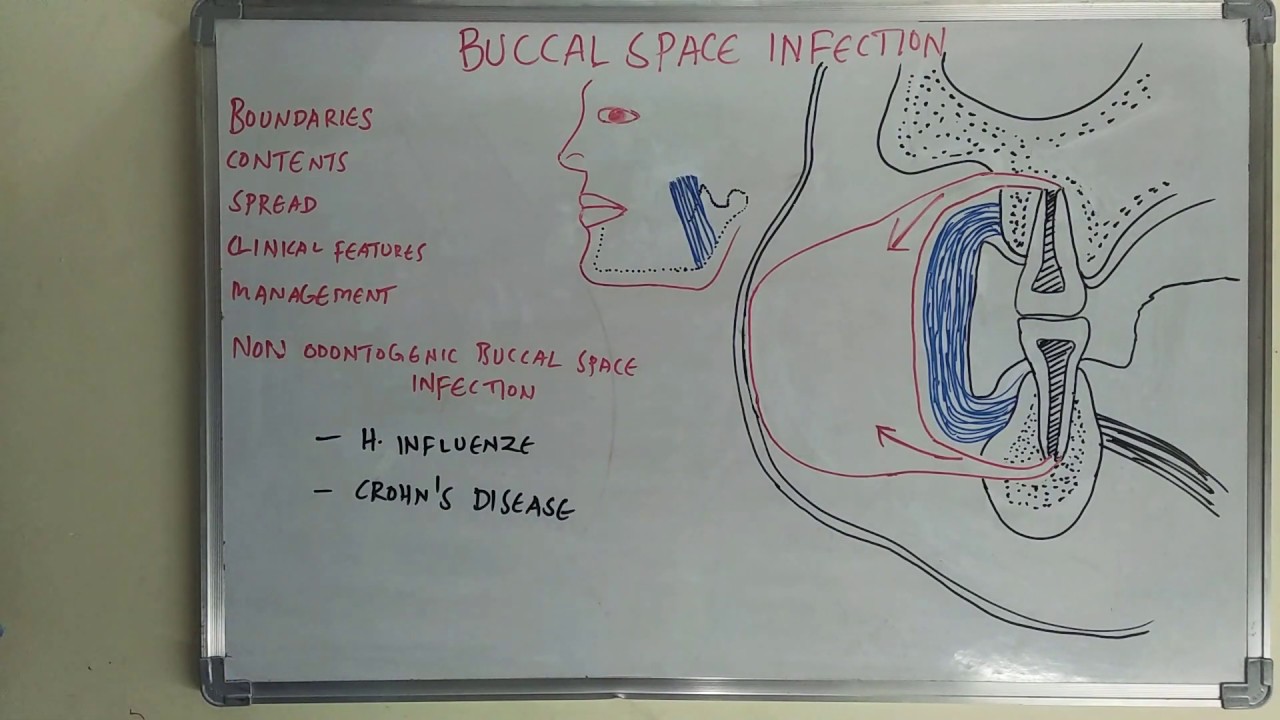 BUCCAL SPACE INFECTION
BOUNDARIES
CONTENTS
SPREAD
CLINICAL FEATURES
MANAGEMENT
NON ODONTOGENIC BUCCAL SPACE
INFECTION
– H. INFLUENZE
– CROHN'S DISEASE